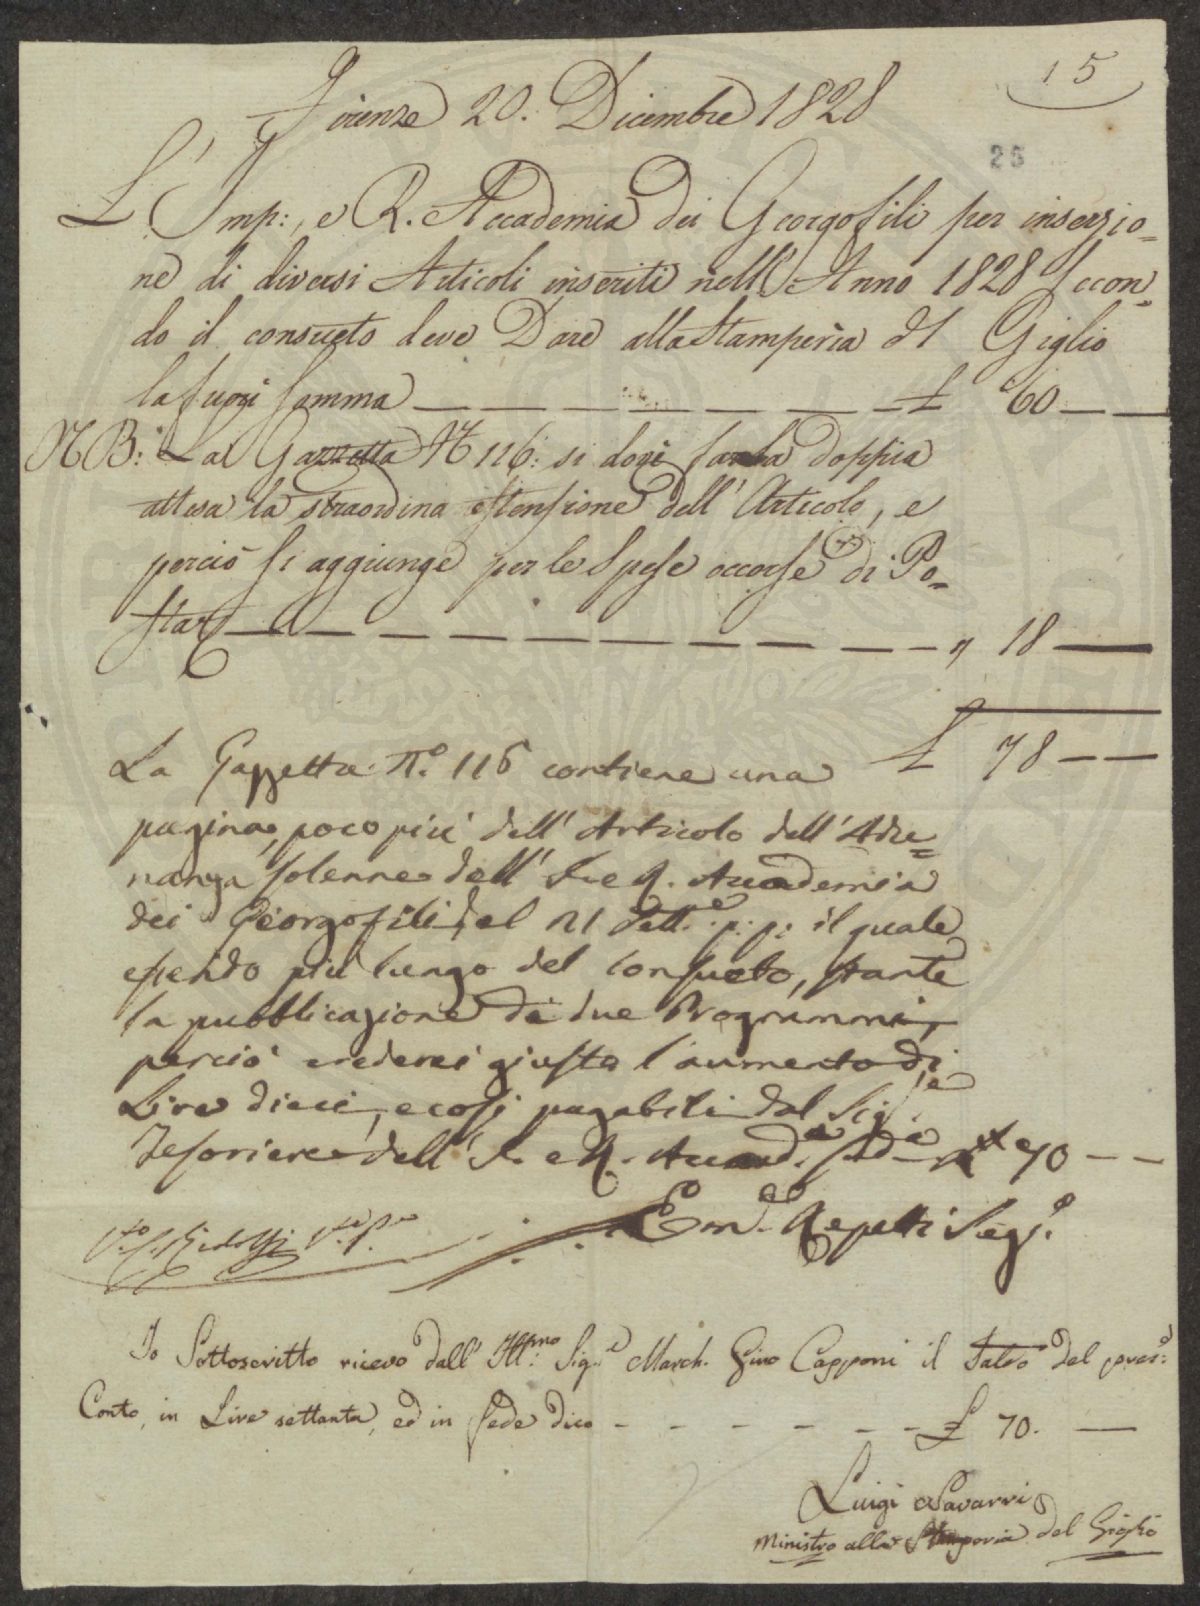 15
25
Firenze 20. Dicembre 1828
L'Imp:, e R. Accademia dei Georgofili per inserzio=
ne di diversi Articoli inseriti nell'Anno 1828 secon=
do il consueto deve Dare alla Stamperia del Giglio
la fuori somma £ 60
NB: La Gazzetta N 116: si dovè farla doppia
attesa la straordina estensione dell'Articolo, e
perciò si aggiunge per le Spese occorse di Po=
sta „ 18
£ 78
La Gazzetta N.° 116 contiene una
pagina, poco più dell'Articolo dell'Adu=
nanza solenne dell'I. e R. Accademia
dei Georgofili del 21 Sett.e p:p: il quale
essendo più lungo del consueto, stante
la pubblicazione di due Programmi,
perciò crederei giusto l'aumento di
Lire dieci, e così pagabili dal Sig.e
Tesoriere dell'I. e R. Accad.a £ 70
Em.e Repetti Seg.o
Ridolfi
Io Sottoscritto ricevo dall'Ill:mo Sig.e March. Gino Capponi il Saldo del pres:e
Conto, in Lire settanta, ed in fede dico £ 70.
Luigi Pavarri
Ministro alla Stamperia del Giglio